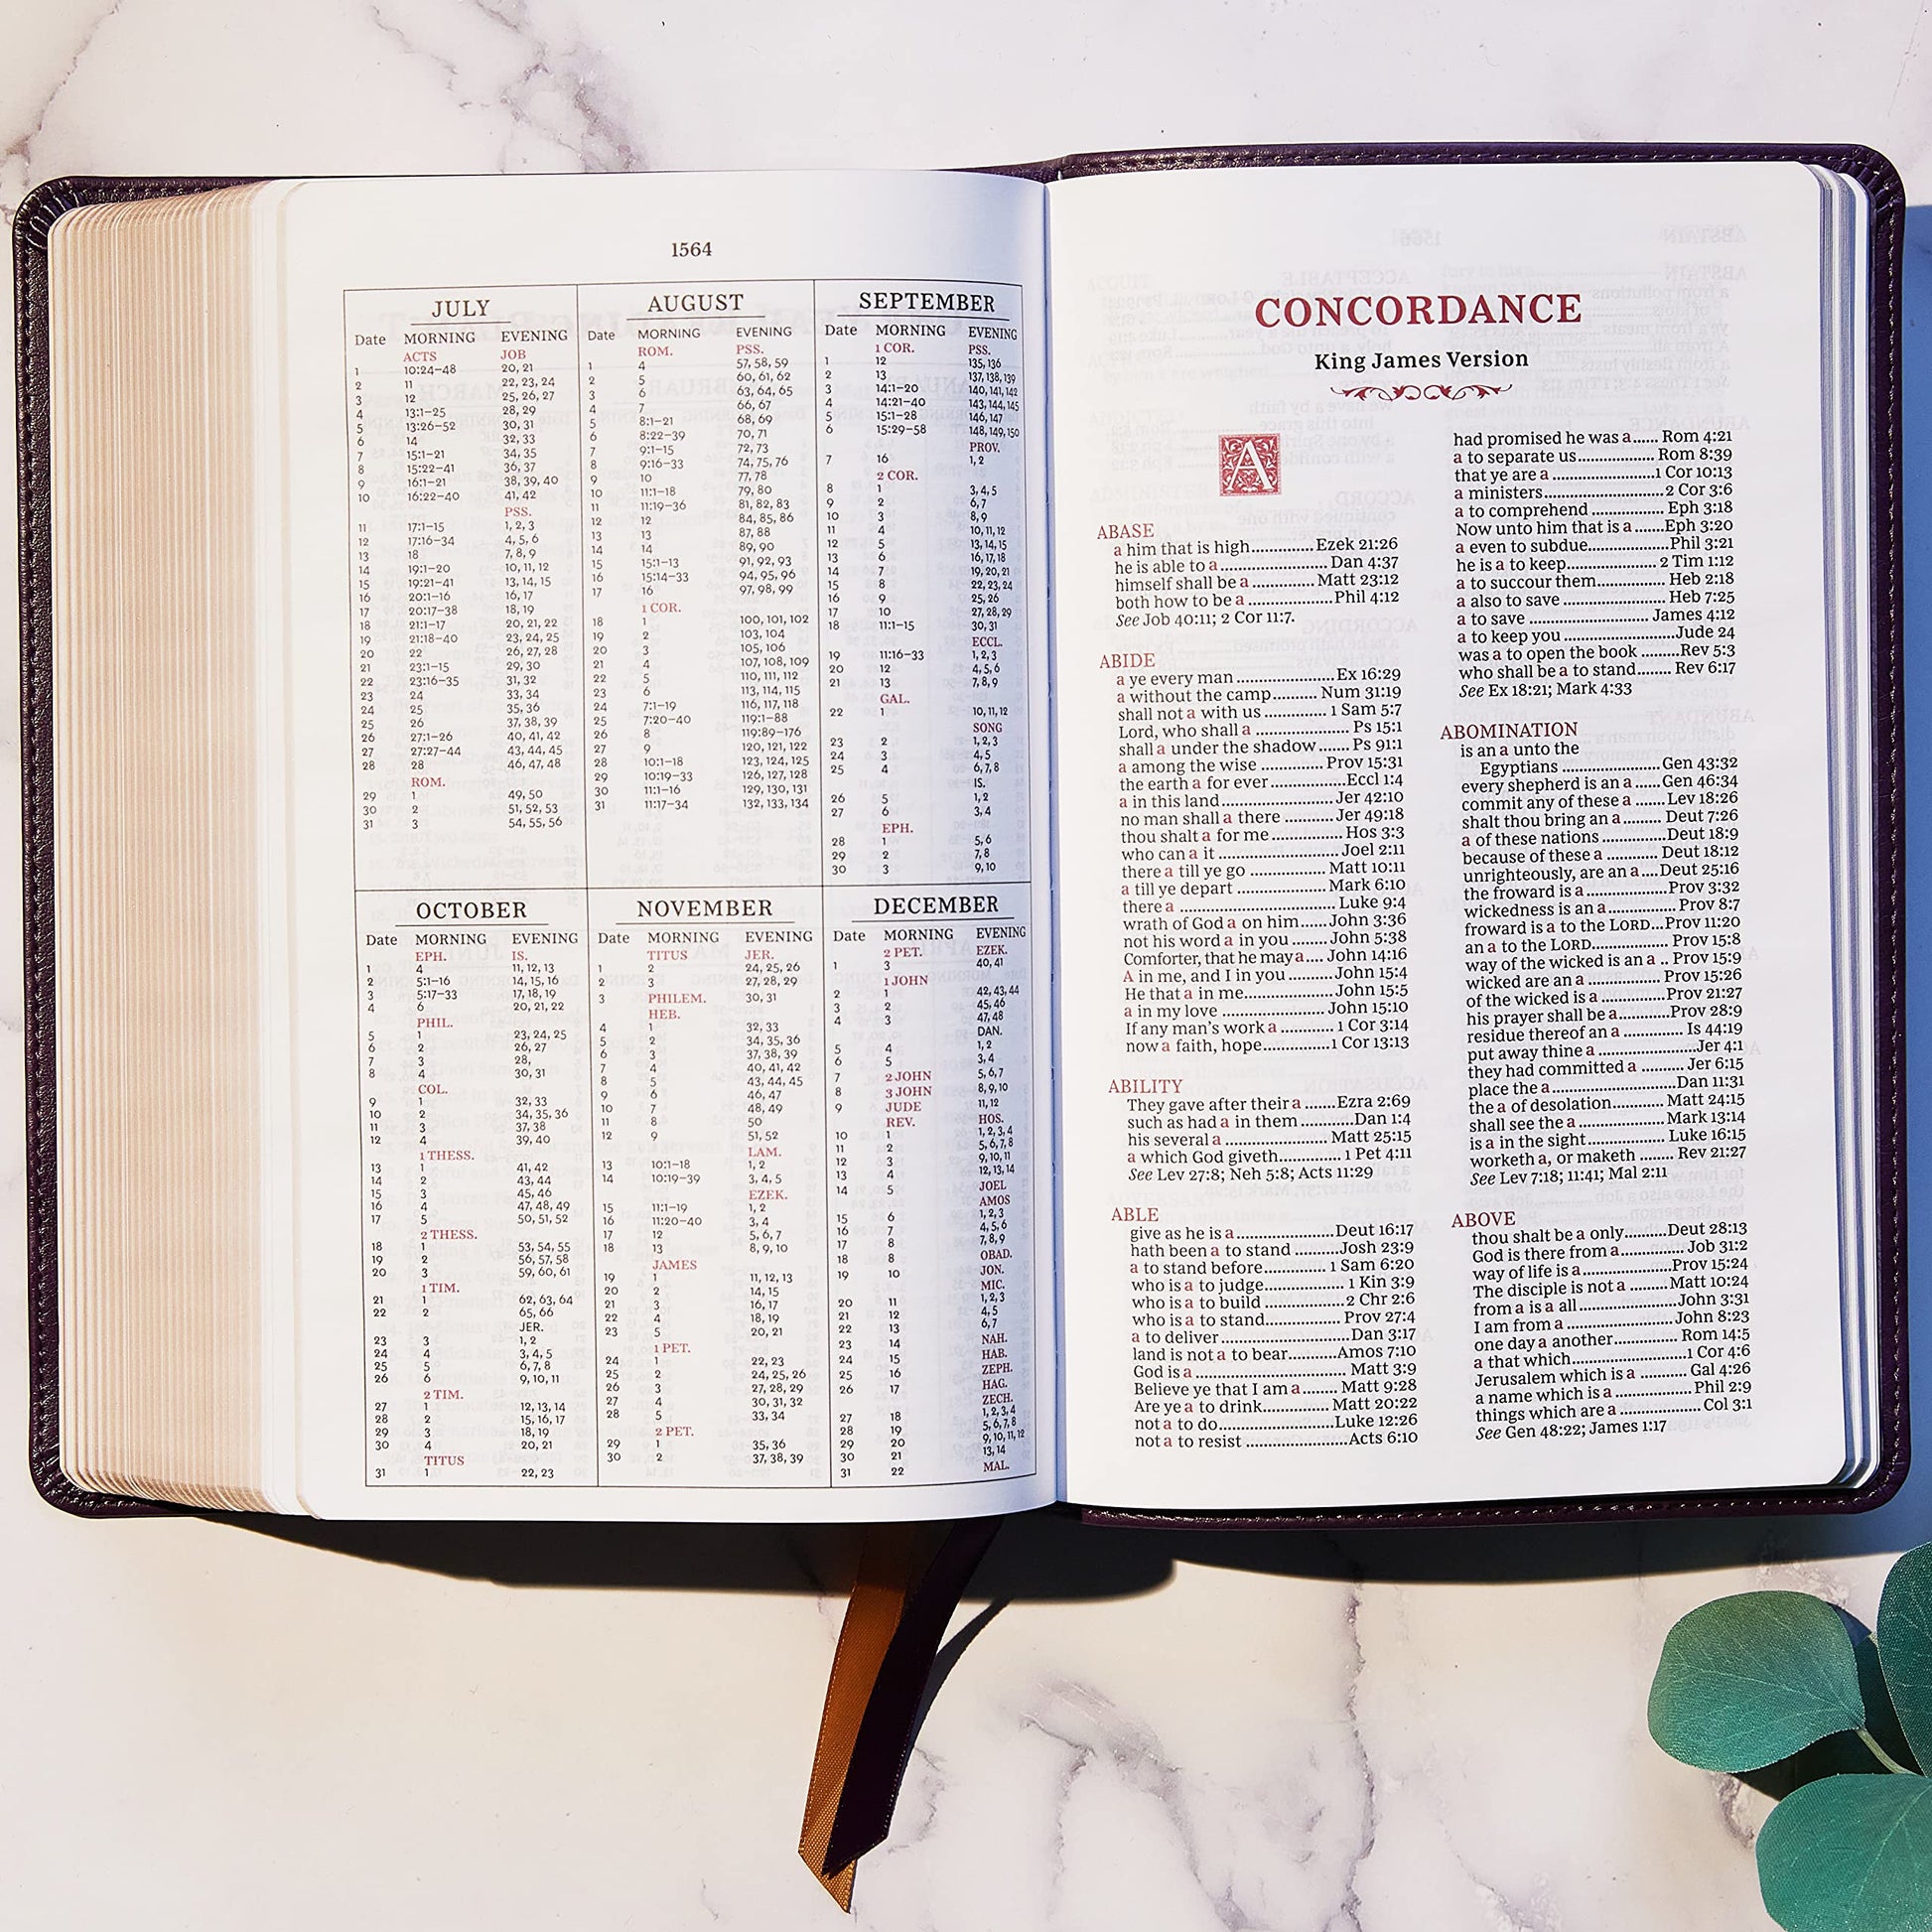 1564
JULY
Date MORNING EVENING
ACTS JOB
1 10:24–48 20, 21
2 11 22, 23, 24
3 12 25, 26, 27
4 13:1–25 28, 29
5 13:26–52 30, 31
6 14 32, 33
7 15:1–21 34, 35
8 15:22–41 36, 37
9 16:1–21 38, 39, 40
10 16:22–40 41, 42
PSS.
11 17:1–15 1, 2, 3
12 17:16–34 4, 5, 6
13 18 7, 8, 9
14 19:1–20 10, 11, 12
15 19:21–41 13, 14, 15
16 20:1–16 16, 17
17 20:17–38 18, 19
18 21:1–17 20, 21, 22
19 21:18–40 23, 24, 25
20 22 26, 27, 28
21 23:1–15 29, 30
22 23:16–35 31, 32
23 24 33, 34
24 25 35, 36
25 26 37, 38, 39
26 27:1–26 40, 41, 42
27 27:27–44 43, 44, 45
28 28 46, 47, 48
ROM.
29 1 49, 50
30 2 51, 52, 53
31 3 54, 55, 56
AUGUST
Date MORNING EVENING
ROM. PSS.
1 4 57, 58, 59
2 5 60, 61, 62
3 6 63, 64, 65
4 7 66, 67
5 8:1–21 68, 69
6 8:22–39 70, 71
7 9:1–15 72, 73
8 9:16–33 74, 75, 76
9 10 77, 78
10 11:1–18 79, 80
11 11:19–36 81, 82, 83
12 12 84, 85, 86
13 13 87, 88
14 14 89, 90
15 15:1–13 91, 92, 93
16 15:14–33 94, 95, 96
17 16 97, 98, 99
1 COR.
18 1 100, 101, 102
19 2 103, 104
20 3 105, 106
21 4 107, 108, 109
22 5 110, 111, 112
23 6 113, 114, 115
24 7:1–19 116, 117, 118
25 7:20–40 119:1–88
26 8 119:89–176
27 9 120, 121, 122
28 10:1–18 123, 124, 125
29 10:19–33 126, 127, 128
30 11:1–16 129, 130, 131
31 11:17–34 132, 133, 134
SEPTEMBER
Date MORNING EVENING
1 COR. PSS.
1 12 135, 136
2 13 137, 138, 139
3 14:1–20 140, 141, 142
4 14:21–40 143, 144, 145
5 15:1–28 146, 147
6 15:29–58 148, 149, 150
PROV.
7 16 1, 2
2 COR.
8 1 3, 4, 5
9 2 6, 7
10 3 8, 9
11 4 10, 11, 12
12 5 13, 14, 15
13 6 16, 17, 18
14 7 19, 20, 21
15 8 22, 23, 24
16 9 25, 26
17 10 27, 28, 29
18 11:1–15 30, 31
ECCL.
19 11:16–33 1, 2, 3
20 12 4, 5, 6
21 13 7, 8, 9
GAL.
22 1 10, 11, 12
SONG
23 2 1, 2, 3
24 3 4, 5
25 4 6, 7, 8
IS.
26 5 1, 2
27 6 3, 4
EPH.
28 1 5, 6
29 2 7, 8
30 3 9, 10
OCTOBER
Date MORNING EVENING
EPH. IS.
1 4 11, 12, 13
2 5:1–16 14, 15, 16
3 5:17–33 17, 18, 19
4 6 20, 21, 22
PHIL.
5 1 23, 24, 25
6 2 26, 27
7 3 28,
8 4 30, 31
COL.
9 1 32, 33
10 2 34, 35, 36
11 3 37, 38
12 4 39, 40
1 THESS.
13 1 41, 42
14 2 43, 44
15 3 45, 46
16 4 47, 48, 49
17 5 50, 51, 52
2 THESS.
18 1 53, 54, 55
19 2 56, 57, 58
20 3 59, 60, 61
1 TIM.
21 1 62, 63, 64
22 2 65, 66
JER.
23 3 1, 2
24 4 3, 4, 5
25 5 6, 7, 8
26 6 9, 10, 11
2 TIM.
27 1 12, 13, 14
28 2 15, 16, 17
29 3 18, 19
30 4 20, 21
TITUS
31 1 22, 23
NOVEMBER
Date MORNING EVENING
TITUS JER.
1 2 24, 25, 26
2 3 27, 28, 29
3 PHILEM. 30, 31
HEB.
4 1 32, 33
5 2 34, 35, 36
6 3 37, 38, 39
7 4 40, 41, 42
8 5 43, 44, 45
9 6 46, 47
10 7 48, 49
11 8 50
12 9 51, 52
LAM.
13 10:1–18 1, 2
14 10:19–39 3, 4, 5
EZEK.
15 11:1–19 1, 2
16 11:20–40 3, 4
17 12 5, 6, 7
18 13 8, 9, 10
JAMES
19 1 11, 12, 13
20 2 14, 15
21 3 16, 17
22 4 18, 19
23 5 20, 21
1 PET.
24 1 22, 23
25 2 24, 25, 26
26 3 27, 28, 29
27 4 30, 31, 32
28 5 33, 34
2 PET.
29 1 35, 36
30 2 37, 38, 39
DECEMBER
Date MORNING EVENING
2 PET. EZEK.
1 3 40, 41
1 JOHN
2 1 42, 43, 44
3 2 45, 46
4 3 47, 48
DAN.
5 4 1, 2
6 5 3, 4
7 2 JOHN 5, 6, 7
8 3 JOHN 8, 9, 10
9 JUDE 11, 12
REV. HOS.
10 1 1, 2, 3, 4
11 2 5, 6, 7, 8
12 3 9, 10, 11
13 4 12, 13, 14
14 5 JOEL
AMOS
15 6 1, 2, 3
16 7 4, 5, 6
17 8 7, 8, 9
18 8 OBAD.
19 10 JON.
MIC.
20 11 1, 2, 3
21 12 4, 5
22 13 6, 7
23 14 NAH.
24 15 HAB.
25 16 ZEPH.
26 17 HAG.
ZECH.
27 18 1, 2, 3, 4
28 19 5, 6, 7, 8
29 20 9, 10, 11, 12
30 21 13, 14
31 22 MAL.
CONCORDANCE
King James Version
A
ABASE
a him that is high.............Ezek 21:26
he is able to a....................... Dan 4:37
himself shall be a ............. Matt 23:12
both how to be a ..................Phil 4:12
See Job 40:11; 2 Cor 11:7.
ABIDE
a ye every man ......................Ex 16:29
a without the camp......... Num 31:19
shall not a with us .............1 Sam 5:7
Lord, who shall a ..................... Ps 15:1
shall a under the shadow....... Ps 91:1
a among the wise ............. Prov 15:31
the earth a for ever ................Eccl 1:4
a in this land........................Jer 42:10
no man shall a there ........... Jer 49:18
thou shalt a for me ................ Hos 3:3
who can a it ..........................Joel 2:11
there a till ye go ................ Matt 10:11
a till ye depart ...................Mark 6:10
there a ................................. Luke 9:4
wrath of God a on him...... John 3:36
not his word a in you ........ John 5:38
Comforter, that he may a.... John 14:16
A in me, and I in you .........John 15:4
He that a in me...................John 15:5
a in my love ...................... John 15:10
If any man’s work a ............1 Cor 3:14
now a faith, hope...............1 Cor 13:13
ABILITY
They gave after their a .......Ezra 2:69
such as had a in them ...........Dan 1:4
his several a ...................... Matt 25:15
a which God giveth............. 1 Pet 4:11
See Lev 27:8; Neh 5:8; Acts 11:29
ABLE
give as he is a.....................Deut 16:17
hath been a to stand ..........Josh 23:9
a to stand before.............. 1 Sam 6:20
who is a to judge.................. 1 Kin 3:9
who is a to build .................2 Chr 2:6
who is a to stand................ Prov 27:4
a to deliver.......................... Dan 3:17
land is not a to bear..........Amos 7:10
God is a ................................. Matt 3:9
Believe ye that I am a....... Matt 9:28
Are ye a to drink............. Matt 20:22
not a to do.........................Luke 12:26
not a to resist .....................Acts 6:10
had promised he was a...... Rom 4:21
a to separate us................ Rom 8:39
that ye are a .....................1 Cor 10:13
a ministers........................2 Cor 3:6
a to comprehend ................ Eph 3:18
Now unto him that is a......Eph 3:20
a even to subdue.................Phil 3:21
he is a to keep...................2 Tim 1:12
a to succour them.............. Heb 2:18
a also to save ..................... Heb 7:25
a to save ........................... James 4:12
a to keep you .......................Jude 24
was a to open the book .........Rev 5:3
who shall be a to stand....... Rev 6:17
See Ex 18:21; Mark 4:33
ABOMINATION
is an a unto the
Egyptians .....................Gen 43:32
every shepherd is an a ......Gen 46:34
commit any of these a .......Lev 18:26
shalt thou bring an a ........ Deut 7:26
a of these nations .............Deut 18:9
because of these a ........... Deut 18:12
unrighteously, are an a....Deut 25:16
the froward is a ................ Prov 3:32
wickedness is an a.............. Prov 8:7
froward is a to the LORD...Prov 11:20
an a to the LORD................ Prov 15:8
way of the wicked is an a .. Prov 15:9
wicked are an a ............... Prov 15:26
of the wicked is a .............Prov 21:27
his prayer shall be a...........Prov 28:9
residue thereof an a ............. Is 44:19
put away thine a ....................Jer 4:1
they had committed a ......... Jer 6:15
place the a..........................Dan 11:31
the a of desolation............ Matt 24:15
shall see the a .................. Mark 13:14
is a in the sight................ Luke 16:15
worketh a, or maketh ....... Rev 21:27
See Lev 7:18; 11:41; Mal 2:11
ABOVE
thou shalt be a only.........Deut 28:13
God is there from a............ Job 31:2
way of life is a...................Prov 15:24
The disciple is not a ....... Matt 10:24
from a is a all....................John 3:31
I am from a .......................John 8:23
one day a another............. Rom 14:5
a that which........................1 Cor 4:6
Jerusalem which is a .......... Gal 4:26
a name which is a ............... Phil 2:9
things which are a ................Col 3:1
See Gen 48:22; James 1:17